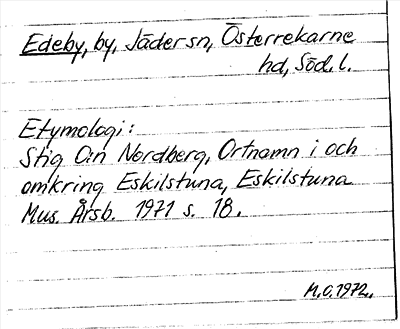 Edeby, by, Jäder sn, Österrekarne
hd, Söd. l.
Etymologi:
Stig O:n Nordberg, Ortnamn i och
omkring Eskilstuna, Eskilstuna
Mus. Årsb. 1971 s. 18.
M.O. 1972.